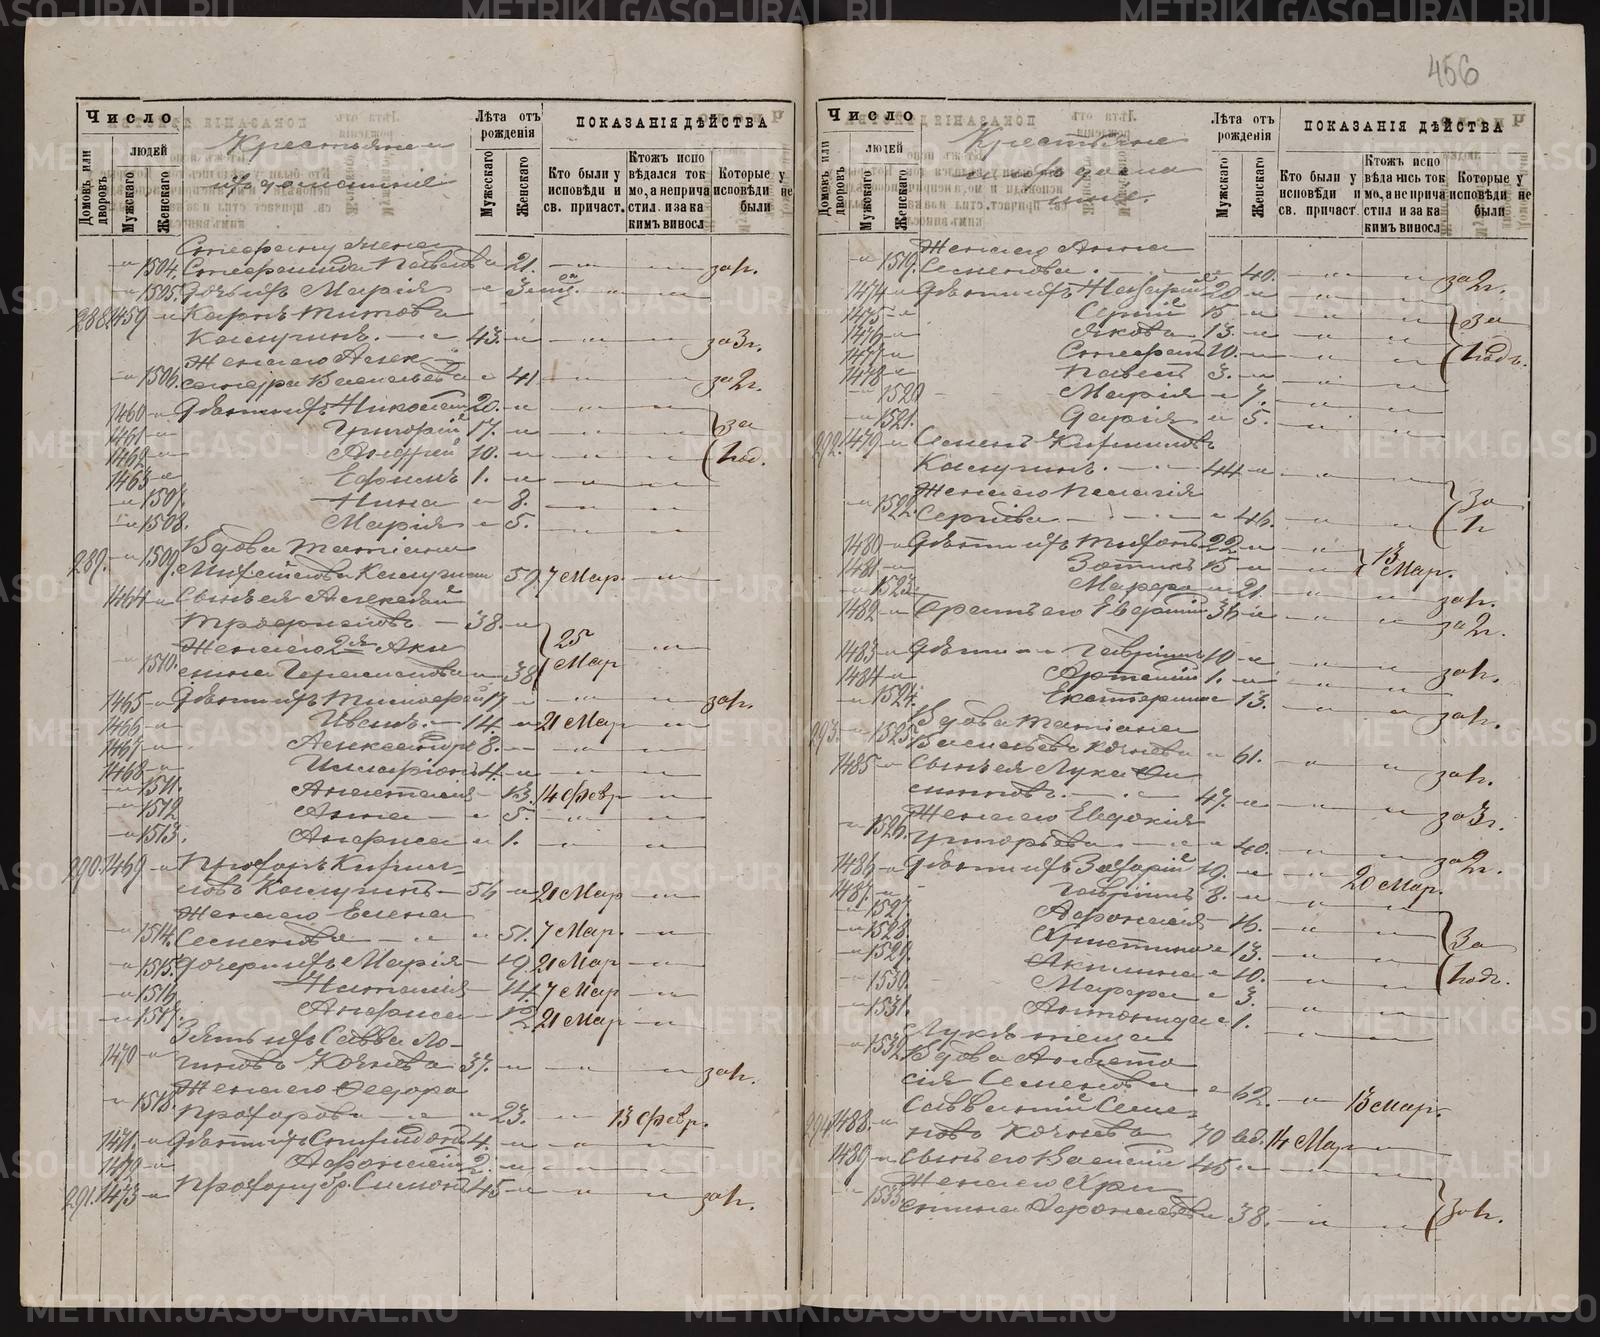 456
Число
людей
Домовъ или дворовъ
Мужскаго
Женскаго
Крестьяне и
ихъ домашніе
Лѣта отъ рожденія
Мужескаго
Женскаго
ПОКАЗАНІЯ ДѢЙСТВА
Кто были у исповѣди и св. причаст.
Ктожъ исповѣдался токмо, а непричастил. и за какимъ виносл
Которые у исповѣди не были
Стефану жена
1504. Стефанида Павлова 21. за 1 г.
1505. Дочь ихъ Марія 3
288 1459 Карпъ Титовъ
Калугинъ. 43. за 3 г.
Жена его Алек
1506. сандра Васильева 41 за 2 г.
1460 Дѣти ихъ Николай 20. за
1461 Григорій 17.
1462 Андрей 10. 1 год.
1463 Ефимъ 1.
1507. Нина 8.
1508. Марія 5.
289. 1509. Вдова Татіана
Калугина 59. 7 Мар.
1464 Сынъ ея Алексѣй
38. 25
Жена его 2я Аки
1510. лина Герасимова 38 Мар
1465 Дѣти ихъ Тимофей 17 за 1 г.
1466 Иванъ. 14. 21 Мар
1467 Александръ 8.
1468 Илларіонъ 4.
1511. Анастасія 13. 14 Февр
1512 Анна 5.
1513. Анфиса 1.
290. 1469 Прохоръ Кирил-
ловъ Калугинъ 54 21 Мар
Жена его Елена
1514. Семенова 51. 7 Мар.
1515. Дочери ихъ Марія 19. 21 Мар
1516 Наталія 14. 7 Мар
1517. Анфиса 12. 21 Мар
Зять ихъ Савва Ло-
1470 гиновъ Кочневъ 37. за 1 г.
Жена его Ѳедора
1518. Прохорова 23. 13 Февр.
1471. Дѣти ихъ Спиридонъ 4.
1472 Афонасій 2.
291. 1473 Прохору бр. Симонъ 45 за 1 г.
Число
людей
Домовъ или дворовъ
Мужскаго
Женскаго
Крестьяне
и ихъ дома
шніе.
Лѣта отъ рожденія
Мужскаго
Женскаго
ПОКАЗАНІЯ ДѢЙСТВА
Кто были у исповѣди и св. причаст.
Ктожъ исповѣдались токмо, а не причастил и за какимъ виносл
Которые у исповѣди не были
Жена его Анна
1519. Семенова. 40. за 2 г.
1474 Дѣти ихъ Назарій 20
1475 Сергій 15. за
1476 Яковъ 13.
1477 Стефанъ 10. 1 годъ.
1478 Павелъ 3.
1520 Марія 7.
1521. Дарія 5.
292. 1479 Семенъ Кирилловъ
Калугинъ. 44
Жена его Пелагія за
1522. Сергіева 46. 1 г
1480 Дѣти ихъ Тихонъ 22. 13
1481 Зотикъ 15 Мар.
1523. Марфа 21. за 1 г.
1482 Братъ его Евдокимъ 36 за 2 г.
1483 Дѣти Гавріилъ 10 за 1 г.
1484 Артемій 1.
1524. Екатерина 13. за 1 г.
293. 1525. Вдова Татіана
Васильева Кочнева 61. за 1 г.
1485 Сынъ ея Лука Си
47. за 3 г.
Жена его Евдокія
1526. Григорьева 40. за 2 г.
1486 Дѣти ихъ Захарій 19. 20 Мар.
1487. Гавріилъ 8.
1527. Афонасія 16.
1528. Христина 13. За
1529. Акилина 10. 1 годъ.
1530. Марфа 3.
1531. Антонида 1.
Лукѣ теща
1532. Вдова Анаста
сія Семенова 62. 13 Мар.
Савватій Семе-
294. 1488. новъ Кочневъ 70 вд. 14 Мар
1489 Сынъ его Василій 45
Жена его Хри
1533. стина Афонасьева 38. за 1 г.
METRIKI.GASO-URAL.RU